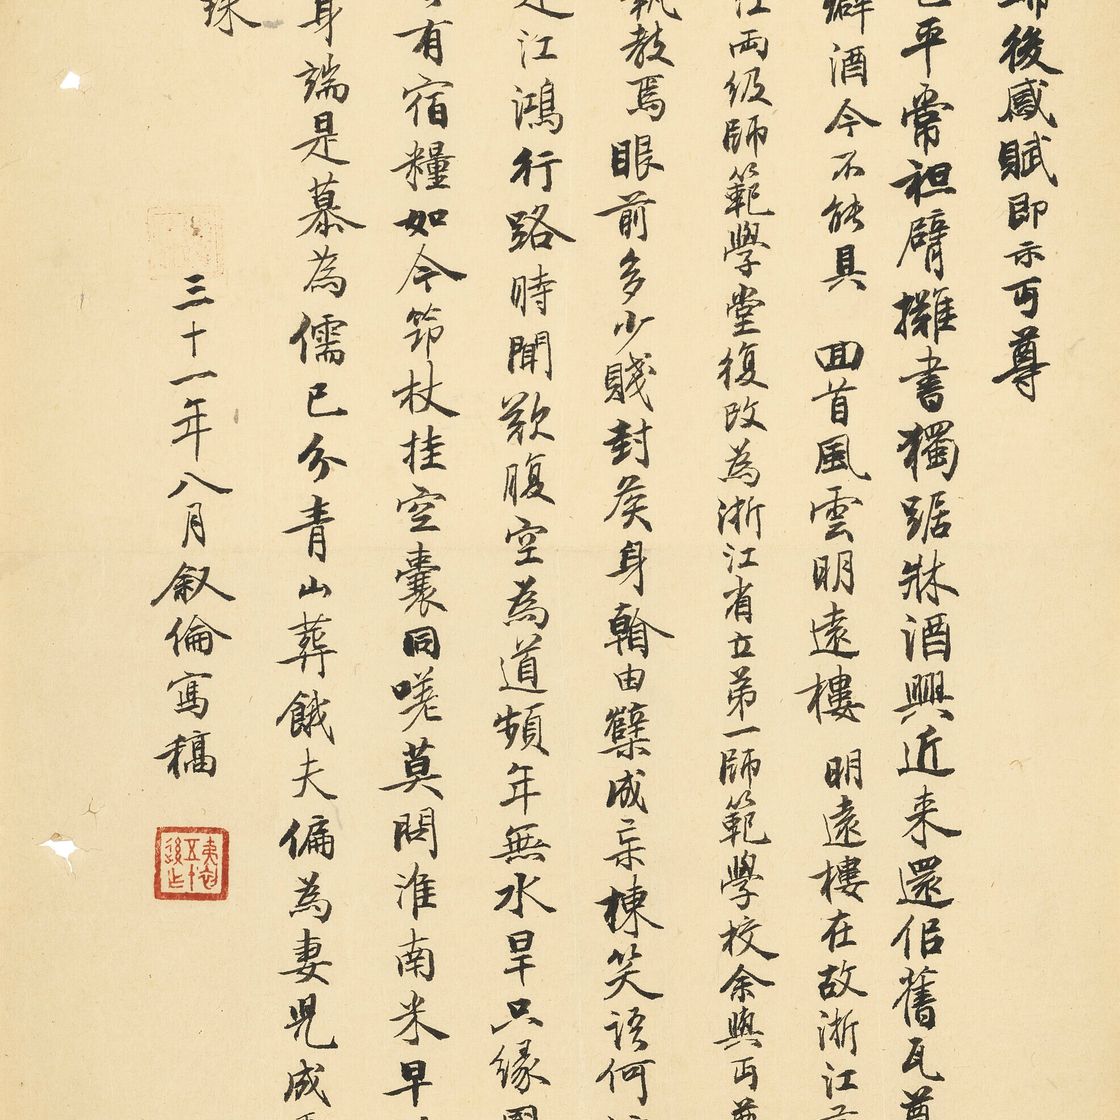 後感賦即示丏尊
平常袒臂擁書獨踞牀酒興近来還佀舊瓦
酒今不能具 回首風雲明遠樓 明遠樓在故浙江
江兩級師範學堂復改為浙江省立第一師範學校余與丏
教焉眼前多少賤封矦身翰由櫱成宗棟笑语何
江鴻行路時聞歎腹空為道頻年無水旱只緣
有宿糧如今笻杖挂空囊同嗟莫問淮南米早
身端是慕為儒已分青山葬餓夫偏為妻兒成
珠
三十一年八月叙倫寫稿